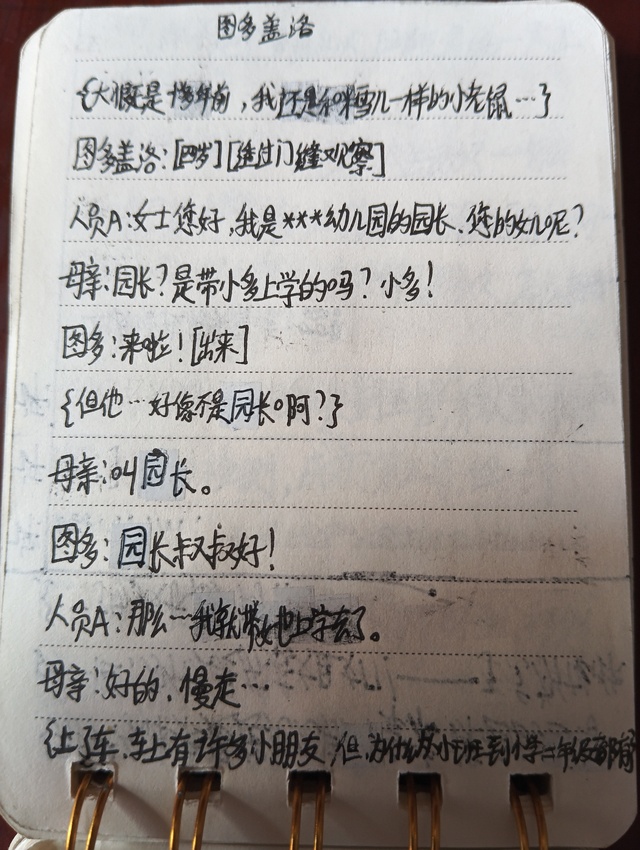 图多盖洛
{大概是十多年前，我还是和粽儿一样的小老鼠…}
图多盖洛：[四岁][透过门缝观察]
人员A：女士您好，我是***幼儿园的园长，您的女儿呢？
母亲：园长？是带小多上学的吗？小多！
图多：来啦！[出来]
{但他…好像不是园长啊？}
母亲：叫园长。
图多：园长叔叔好！
人员A：那么…我就带她上学去了。
母亲：好的，慢走…
{上了车，车上有许多小朋友，但，为什么从小班到小学二年级都有